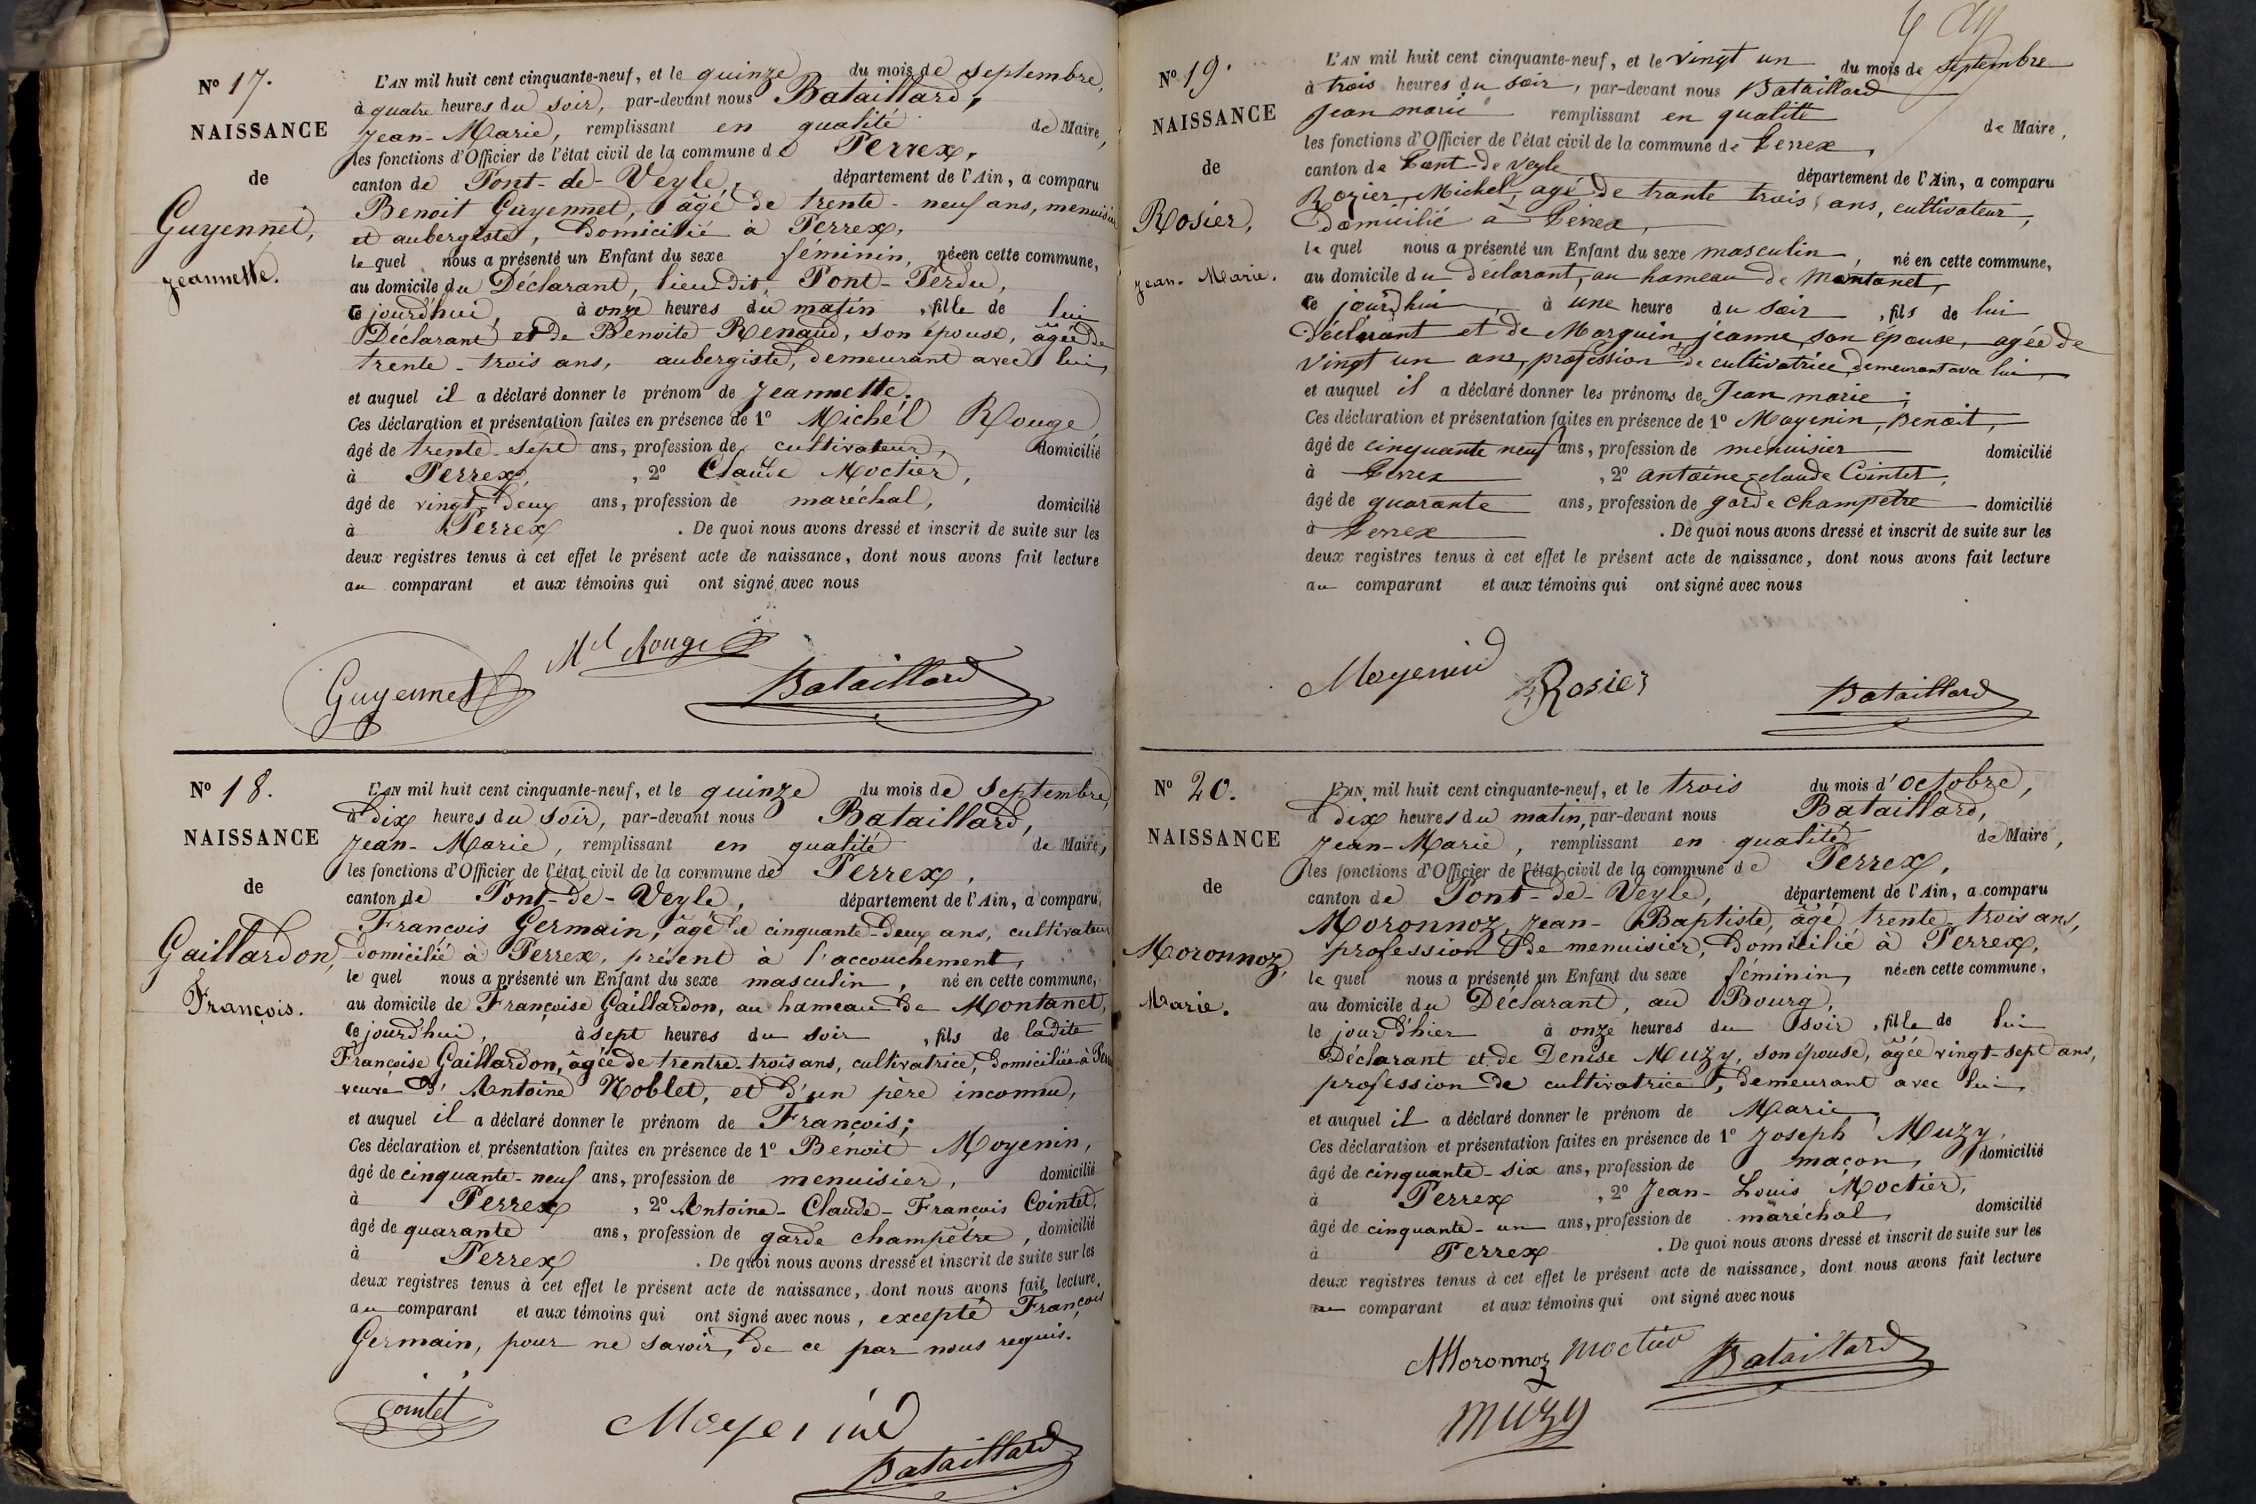 N° 17.
NAISSANCE
de
Guyennet,
Jeannette.
L'AN mil huit cent cinquante-neuf, et le quinze du mois de Septembre,
à quatre heures du soir, par-devant nous Bataillard,
Jean-Marie, remplissant en qualité de Maire,
les fonctions d'Officier de l'état civil de la commune de Perrex,
canton de Pont-de-Veyle, département de l'Ain, a comparu
Benoit Guyennet, âgé de trente-neuf ans, menuisier
et aubergiste, domicilié à Perrex,
lequel nous a présenté un Enfant du sexe féminin, née en cette commune,
au domicile du Déclarant, lieu dit, Pont-Perdu,
ce jourd'hui, à onze heures du matin, fille de lui
Déclarant et de Benoite Renaud, son épouse, âgée de
trente-trois ans, aubergiste, demeurant avec lui,
et auquel il a déclaré donner le prénom de Jeannette.
Ces déclaration et présentation faites en présence de 1° Michel Rouge,
âgé de trente-sept ans, profession de cultivateur, domicilié
à Perrex, , 2° Claude Moctier,
âgé de vingt-deux ans, profession de maréchal, domicilié
à Perrex . De quoi nous avons dressé et inscrit de suite sur les
deux registres tenus à cet effet le présent acte de naissance, dont nous avons fait lecture
au comparant et aux témoins qui ont signé avec nous
Mel Rouge
Guyennet Bataillard
N° 18.
NAISSANCE
de
Gaillardon,
François.
L'AN mil huit cent cinquante-neuf, et le quinze du mois de Septembre,
à dix heures du soir, par-devant nous Bataillard,
Jean-Marie, remplissant en qualité de Maire,
les fonctions d'Officier de l'état civil de la commune de Perrex,
canton de Pont-de-Veyle, département de l'Ain, a comparu
François Germain, âgé de cinquante-deux ans, cultivateur
domicilié à Perrex, présent à l'accouchement,
lequel nous a présenté un Enfant du sexe masculin, né en cette commune,
au domicile de Françoise Gaillardon, au hameau de Montanet,
ce jourd'hui, à sept heures du soir, fils de ladite
Françoise Gaillardon, âgée de trentre-trois ans, cultivatrice, domiciliée à
veuve d'Antoine Noblet, et d'un père inconnu,
et auquel il a déclaré donner le prénom de François;
Ces déclaration et présentation faites en présence de 1° Benoit Moyenin,
âgé de cinquante-neuf ans, profession de menuisier, domicilié
à Perrex , 2° Antoine-Claude-François Cointet,
âgé de quarante ans, profession de garde champêtre, domicilié
à Perrex . De quoi nous avons dressé et inscrit de suite sur les
deux registres tenus à cet effet le présent acte de naissance, dont nous avons fait lecture
au comparant et aux témoins qui ont signé avec nous, excepté François
Germain, pour ne savoir, de ce par nous requis.
Cointet Moyenin
Bataillard
N° 19.
NAISSANCE
de
Rosier,
Jean-Marie.
L'AN mil huit cent cinquante-neuf, et le vingt un du mois de Septembre
à trois heures du soir, par-devant nous Bataillard
Jean marie remplissant en qualité de Maire,
les fonctions d'Officier de l'état civil de la commune de Perrex,
canton de Pont-de Veyle département de l'Ain, a comparu
Rozier, Michel, agé de trante trois ans, cultivateur,
Domicilié à Perrex,
lequel nous a présenté un Enfant du sexe masculin, né en cette commune,
au domicile du déclarant, au hameau de Montanet,
ce jourdhui, à une heure du soir, fils de lui
Déclarant et de Marguin, jeanne, son épouse, agée de
vingt un ans, profession de cultivatrice, demeurant avec lui
et auquel il a déclaré donner les prénoms de Jean marie;
Ces déclaration et présentation faites en présence de 1° Moyenin, Benoit,
âgé de cinquante neuf ans, profession de menuisier domicilié
à Perrex , 2° antoine-claude Cointet,
âgé de quarante ans, profession de garde champetre domicilié
à Perrex . De quoi nous avons dressé et inscrit de suite sur les
deux registres tenus à cet effet le présent acte de naissance, dont nous avons fait lecture
au comparant et aux témoins qui ont signé avec nous
Moyenin Rosier Bataillard
N° 20.
NAISSANCE
de
Moronnoz,
Marie.
L'AN mil huit cent cinquante-neuf, et le trois du mois d'Octobre,
à dix heures du matin, par-devant nous Bataillard,
Jean-Marie, remplissant en qualité de Maire,
les fonctions d'Officier de l'état civil de la commune de Perrex,
canton de Pont-de-Veyle, département de l'Ain, a comparu
Moronnoz, Jean-Baptiste, âgé trente-trois ans,
profession de menuisier, domicilié à Perrex,
lequel nous a présenté un Enfant du sexe féminin, née en cette commune,
au domicile du Déclarant, au Bourg,
le jour d'hier à onze heures du soir, fille de lui
Déclarant et de Denise Muzy, son épouse, âgée vingt-sept ans,
profession de cultivatrice, demeurant avec lui,
et auquel il a déclaré donner le prénom de Marie,
Ces déclaration et présentation faites en présence de 1° Joseph Muzy,
âgé de cinquante-six ans, profession de maçon, domicilié
à Perrex , 2° Jean-Louis Moctier,
âgé de cinquante-un ans, profession de maréchal, domicilié
à Perrex . De quoi nous avons dressé et inscrit de suite sur les
deux registres tenus à cet effet le présent acte de naissance, dont nous avons fait lecture
au comparant et aux témoins qui ont signé avec nous
Moronnoz Moctier Bataillard
Muzy